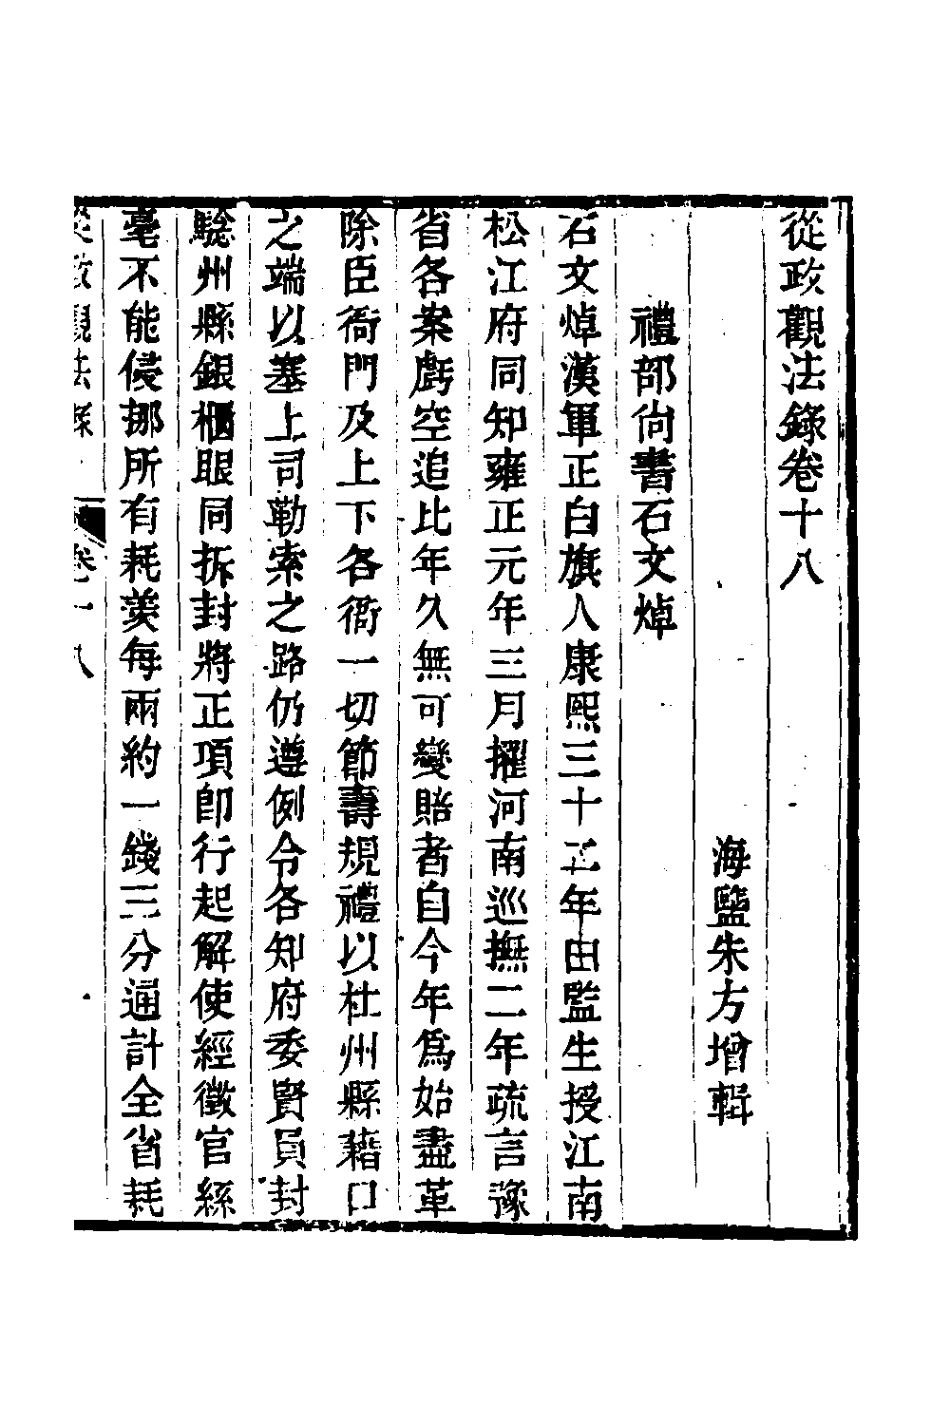 從政觀法錄卷十八
海鹽朱方增輯
禮部尙書石文焯
石文焯漢軍正白旗人康熙三十二年由監生授江南
松江府同知雍正元年三月擢河南巡撫二年疏言豫
省各案虧空追比年久無可變賠者自今年爲始盡革
除臣衙門及上下各衙一切節壽規禮以杜州縣藉口
之端以塞上司勒索之路仍遵例令各知府委賢員封
驗州縣銀櫃眼同拆封將正項卽行起解使經徵官絲
毫不能侵挪所有耗羨每兩約一錢三分通計全省耗
從政觀法錄 卷十八